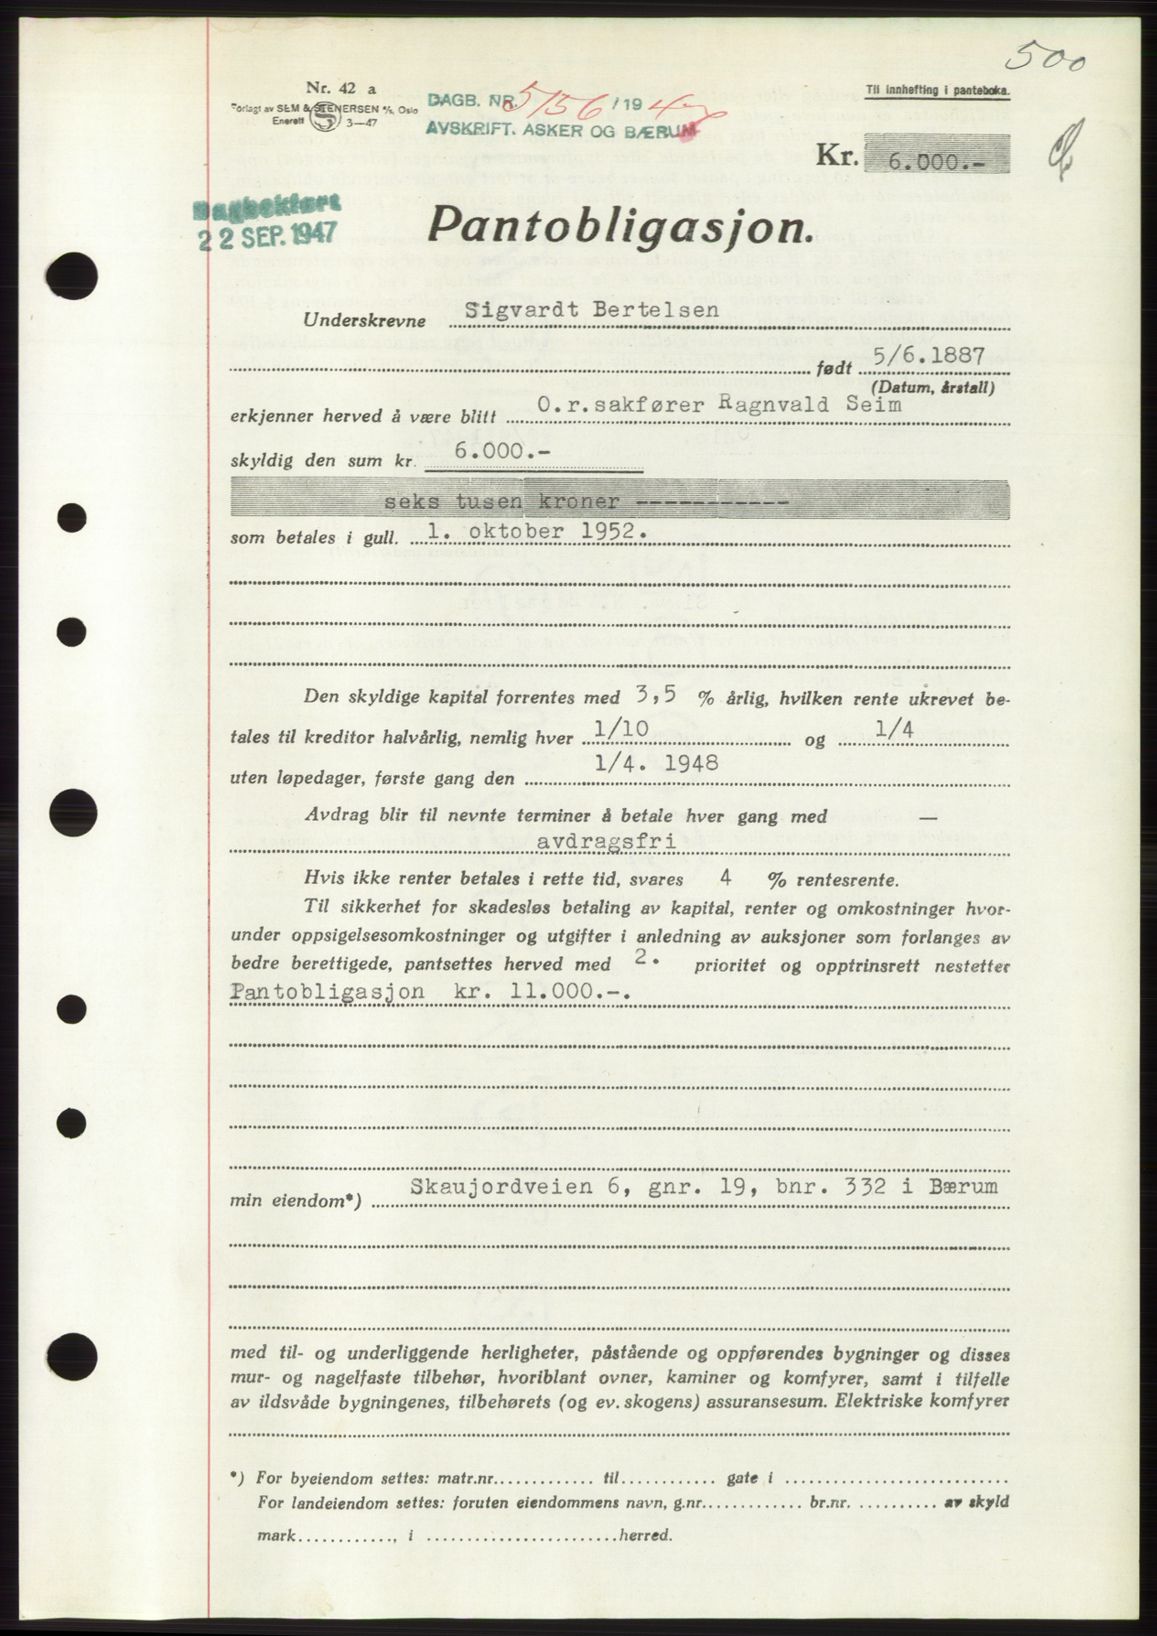 500
Nr. 42 a
Forlagt av SEM & STENERSEN A/S, Oslo
Enerett 3—47
DAGB. NR. 5156/1947
AVSKRIFT. ASKER OG BÆRUM
Til innhefting i panteboka.
Kr. 6.000.-
Dagbokført
22 SEP. 1947
Pantobligasjon.
Underskrevne Sigvardt Bertelsen
født 5/6.1887
(Datum, årstall)
erkjenner herved å være blitt O.r.sakfører Ragnvald Seim
skyldig den sum kr. 6.000.-
seks tusen kroner -----------
som betales i gull. 1. oktober 1952.
Den skyldige kapital forrentes med 3,5 % årlig, hvilken rente ukrevet be-
tales til kreditor halvårlig, nemlig hver 1/10 og 1/4
uten løpedager, første gang den 1/4. 1948
Avdrag blir til nevnte terminer å betale hver gang med —
avdragsfri
Hvis ikke renter betales i rette tid, svares 4 % rentesrente.
Til sikkerhet for skadesløs betaling av kapital, renter og omkostninger hvor-
under oppsigelsesomkostninger og utgifter i anledning av auksjoner som forlanges av
bedre berettigede, pantsettes herved med 2. prioritet og opptrinsrett nestetter
Pantobligasjon kr. 11.000.-.
min eiendom*) Skaujordveien 6, gnr. 19, bnr. 332 i Bærum
med til- og underliggende herligheter, påstående og oppførendes bygninger og disses
mur- og nagelfaste tilbehør, hvoriblant ovner, kaminer og komfyrer, samt i tilfelle
av ildsvåde bygningenes, tilbehørets (og ev. skogens) assuransesum. Elektriske komfyrer
*) For byeiendom settes: matr.nr............. til............ gate i ............................
For landeiendom settes: foruten eiendommens navn, g.nr............. br.nr. .......... av skyld
mark............, i ........................herred.